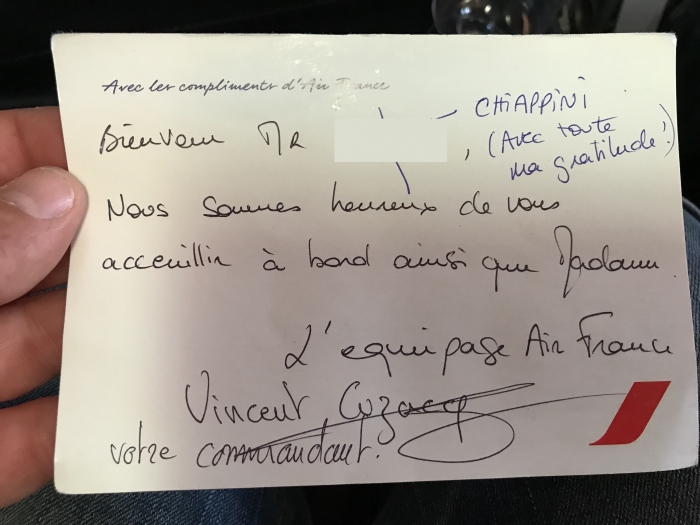 Avec les compliments d'Air France
Bienvenu Mr
CHIAPPINI
, (Avec toute
ma gratitude!)
Nous sommes heureux de vous
acceuillir à bord ainsi que Madame.
L'equipage Air France
Vincent
votre commandant.